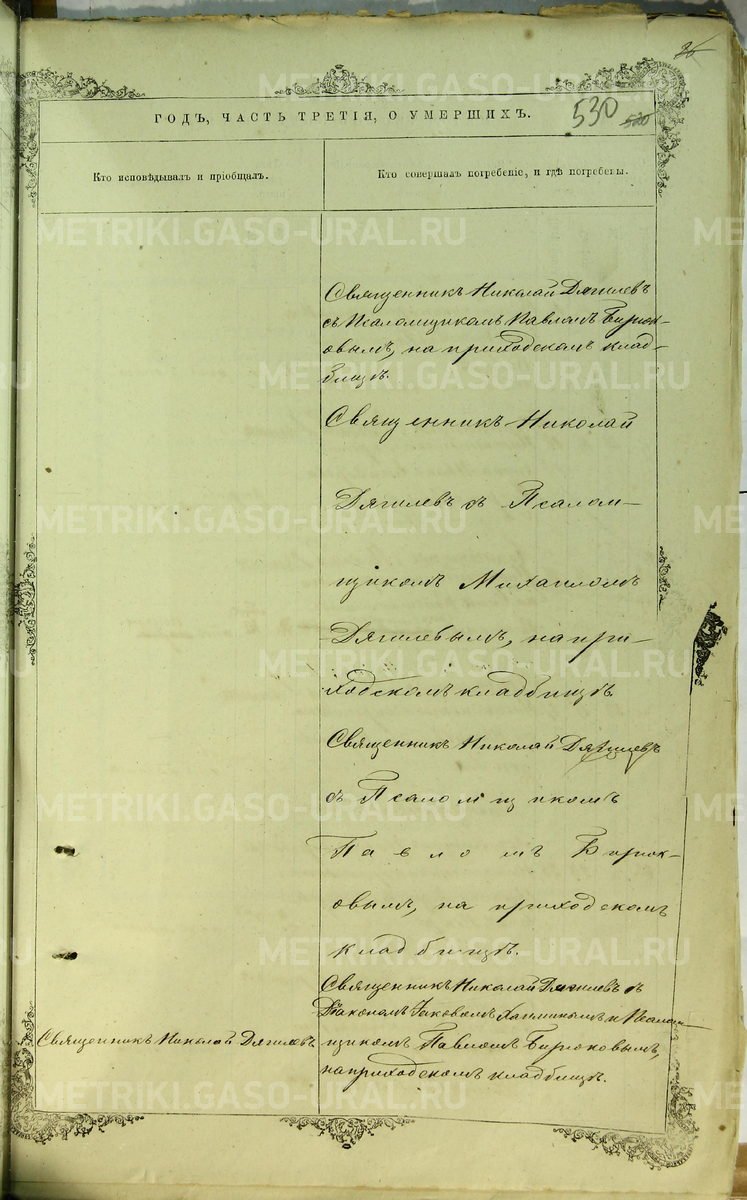 530
ГОДЪ, ЧАСТЬ ТРЕТІЯ, О УМЕРШИХЪ.
Кто исповѣдывалъ и пріобщалъ.
Кто совершалъ погребеніе, и гдѣ погребены.
Священникъ Николай Дягилевъ
съ Псаломщикомъ Павломъ Бирюк-
овымъ, на приходскомъ клад-
бищѣ.
Священникъ Николай
Дягилевъ съ Псалом-
щикомъ Михаиломъ
Дягилевымъ, на при-
ходскомъ кладбищѣ
Священникъ Николай Дягилевъ
съ Псаломщикомъ
Павломъ Бирюк-
овымъ, на приходскомъ
кладбищѣ.
Священникъ Николай Дягилевъ
Священникъ Николай Дягилевъ съ
Діакономъ Іаковомъ и Псалом-
щикомъ Павломъ Бирюковымъ,
на приходскомъ кладбищѣ.
METRIKI.GASO-URAL.RU